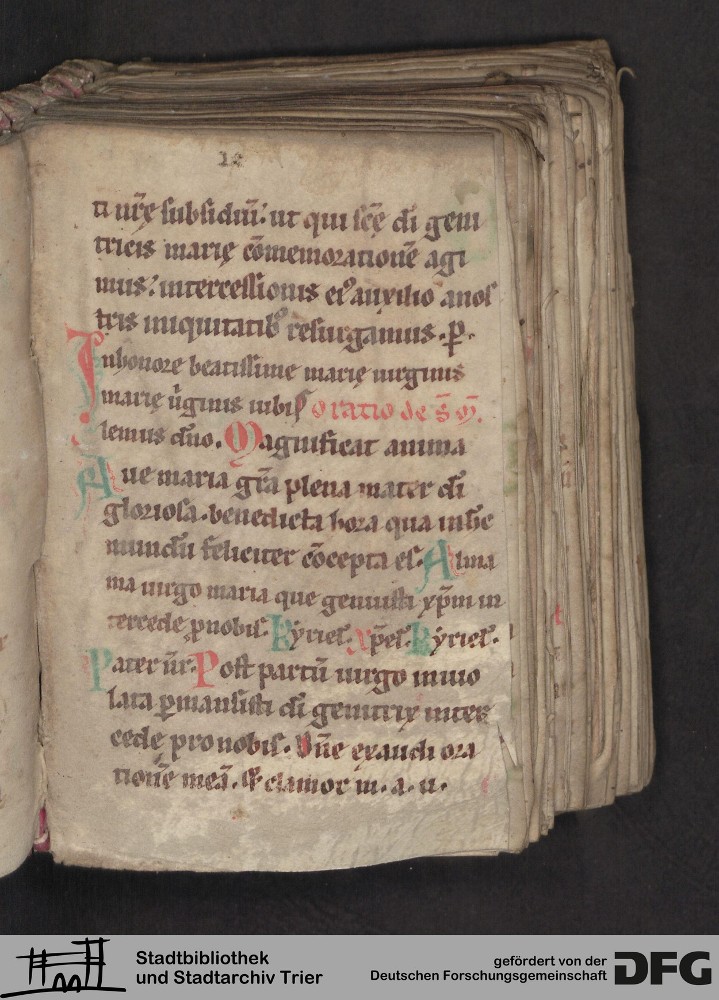 12
ti nr̄ę subsidiū: ut qui scę̄ di geni
tricis marię cōmemorationē agi
mus: intercessionis ei᷒ auxilio a nos
tris iniquitatib᷒ resurgamus. p̲.
Inhonore beatissime marię uirginis
marię ūginis iubi⸗ oratio de s̄ m̄.
lemus dn̄o. Magnificat anima
Aue maria gr̄a plena mater di
gloriosa. benedicta hora qua in hc̄
mundū feliciter cōcepta es. Alma
ma uirgo maria que genuisti xp̄m in
tercede p̲nobis. Kyriel. xp̄el. Kyriel.
Pater nr̄. Post partū uirgo inuio
lata p̲mansisti di genitrix inter
cede pro nobis. Dn̄e exaudi ora
tionē meā. & clamor m. a. u.
Stadtbibliothek
und Stadtarchiv Trier
gefördert von der
Deutschen Forschungsgemeinschaft
DFG